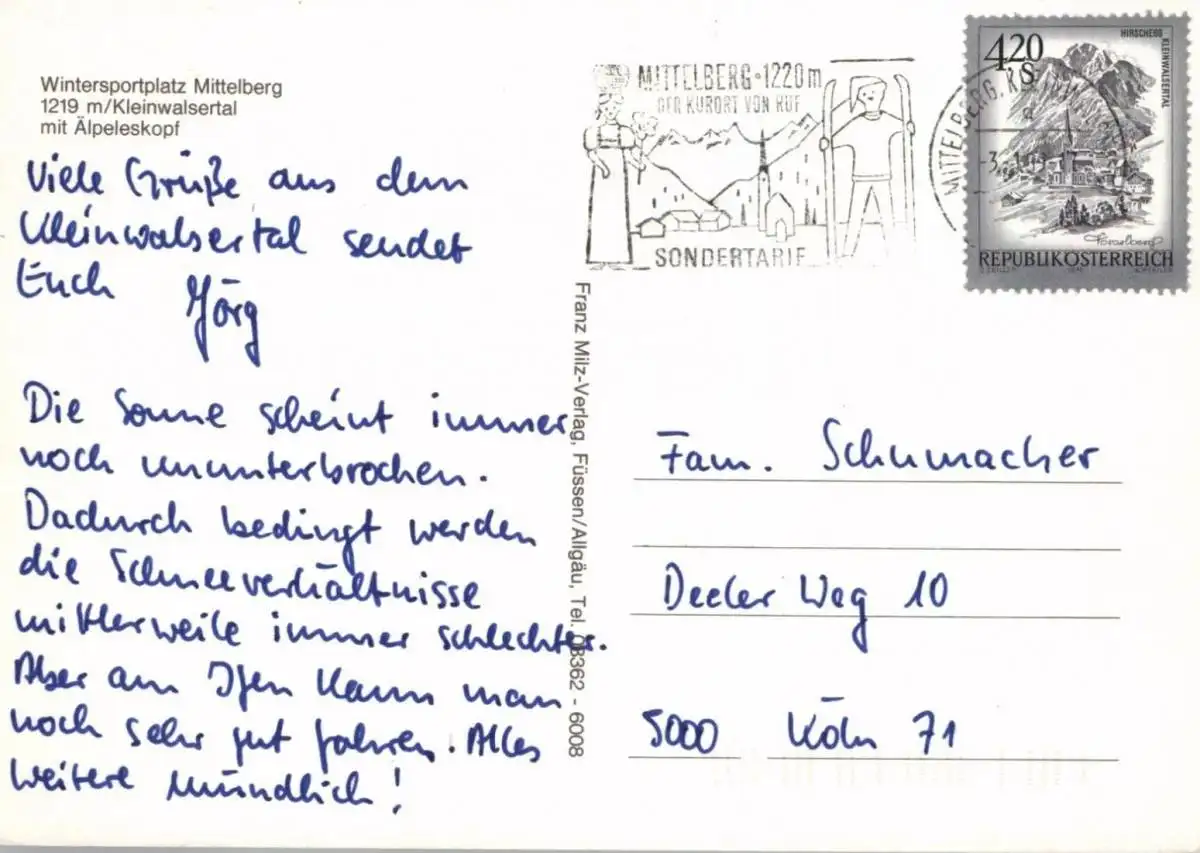 Wintersportplatz Mittelberg
1219 m/Kleinwalsertal
mit Älpeleskopf
Viele Grüße aus dem
Kleinwalsertal sendet
Euch Jörg
Die Sonne scheint immer
noch ununterbrochen.
Dadurch bedingt werden
die Schneeverhältnisse
mittlerweile immer schlechter.
Aber am Ifen kann man
noch sehr gut fahren. Alles
weitere mündlich!
Franz Milz-Verlag, Füssen/Allgäu, Tel. 08362 - 6008
MITTELBERG · 1220m
DER KURORT VON RUF
SONDERTARIF
MITTELBERG,
4.20
S
HIRSCHEGG
KLEINWALSERTAL
Vorarlberg
REPUBLIK ÖSTERREICH
Fam. Schumacher
Decler Weg 10
5000 Köln 71